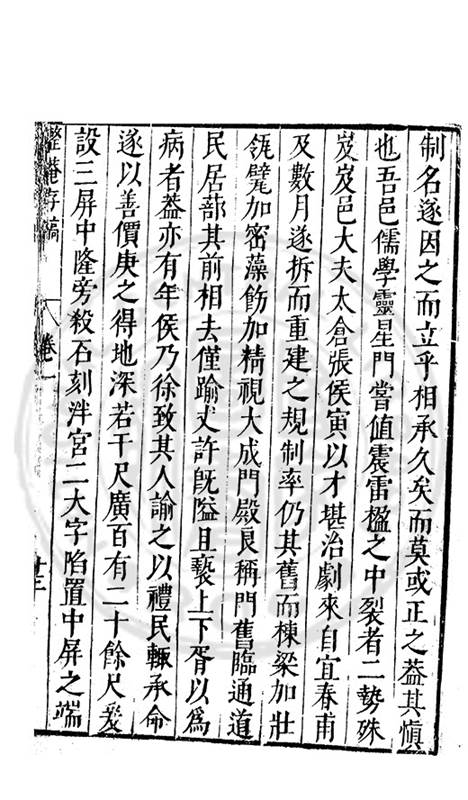 制名遂因之而立乎相承久矣而莫或正之葢其慎
也吾邑儒學靈星門嘗值震雷楹之中裂者二勢殊
岌岌邑大夫太倉張侯寅以才堪治劇來自宜春甫
及數月遂拆而重建之規制率仍其舊而棟梁加壯
瓴甓加密藻飭加精視大成門殿良稱門舊臨通道
民居蔀其前相去僅踰丈許旣隘且褻上下胥以為
病者葢亦有年侯乃徐致其人諭之以禮民輒承命
遂以善價庚之得地深若干尺廣百有二十餘尺爰
設三屏中隆旁殺石刻泮宮二大字陷置中屏之端
整菴存稿
卷一
廿二